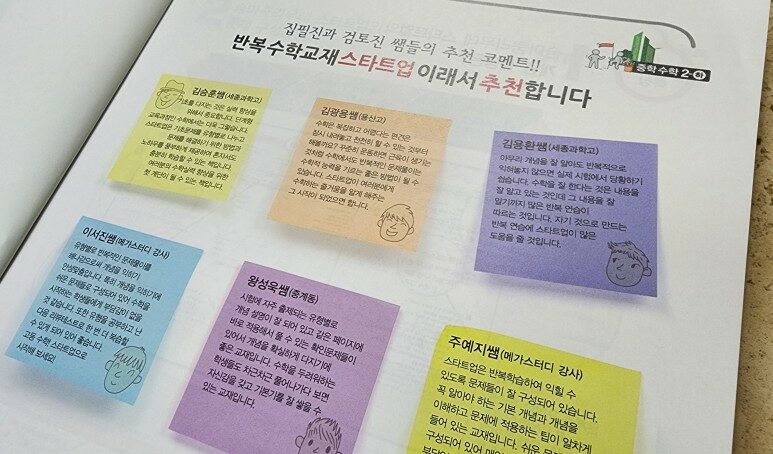 집필진과 검토진 쌤들의 추천 코멘트!!
반복수학교재 스타트업 이래서 추천합니다
중학수학 2-하
김승훈쌤(세종과학고)
기초를 다지는 것은 실력 향상을
위해서 중요합니다. 단계형
교육과정인 수학에서는 더욱 그렇습니다.
스타트업은 기초문제를 유형별로 나누고
문제를 해결하기 위한 방법과
노하우를 풍부하게 제공하여 혼자서도
충분히 학습할 수 있는 책입니다.
여러분의 수학실력 향상을 위한
첫 계단이 될 수 있는 책입니다.
김광용쌤(용산고)
수학은 복잡하고 어렵다는 편견은
잠시 내려놓고 천천히 할 수 있는 것부터
해볼까요? 꾸준히 운동하면 근육이 생기는
것처럼 수학에서도 반복적인 문제풀이는
수학적 능력을 기르는 좋은 방법이 될 수
있습니다. 스타트업이 여러분에게
수학하는 즐거움을 알게 해주는
그 시작이 되었으면 합니다.
김용환쌤(세종과학고)
아무리 개념을 잘 알아도 반복적으로
익혀놓지 않으면 실제 시험에서 당황하기
쉽습니다. 수학을 잘 한다는 것은 내용을
잘 알고 있는 것인데 그 내용을 잘
알기까지 많은 반복 연습이
따르는 것입니다. 자기 것으로 만드는
반복 연습에 스타트업이 많은
도움을 줄 것입니다.
이서진쌤(메가스터디 강사)
유형별로 반복적인 문제풀이를
해나감으로써 개념을 익히기
안성맞춤입니다. 특히 개념을 익히기에
쉬운 문제들로 구성되어 있어 수학을
시작하는 학생들에게 부담감이 없을
것 같습니다. 또한 유형을 공부하고 난
다음 리뷰테스트로 한 번 더 복습할
수 있게 되어 있어 좋습니다.
고등 수학! 스타트업으로
시작해 보세요!
왕성욱쌤(중계동)
시험에 자주 출제되는 유형별로
개념 설명이 잘 되어 있고 같은 페이지에
바로 적용해서 풀 수 있는 확인문제들이
있어서 개념을 확실하게 다지기에
좋은 교재입니다. 수학을 두려워하는
학생들도 차근차근 풀어나가다 보면
자신감을 갖고 기본기를 잘 쌓을 수
있는 교재입니다.
주예지쌤(메가스터디 강사)
스타트업은 반복학습하여 익힐 수
있도록 문제들이 잘 구성되어 있습니다.
꼭 알아야 하는 기본 개념과 개념을
이해하고 문제에 적용하는 팁이 알차게
들어 있는 교재입니다. 쉬운
구성되어 있어